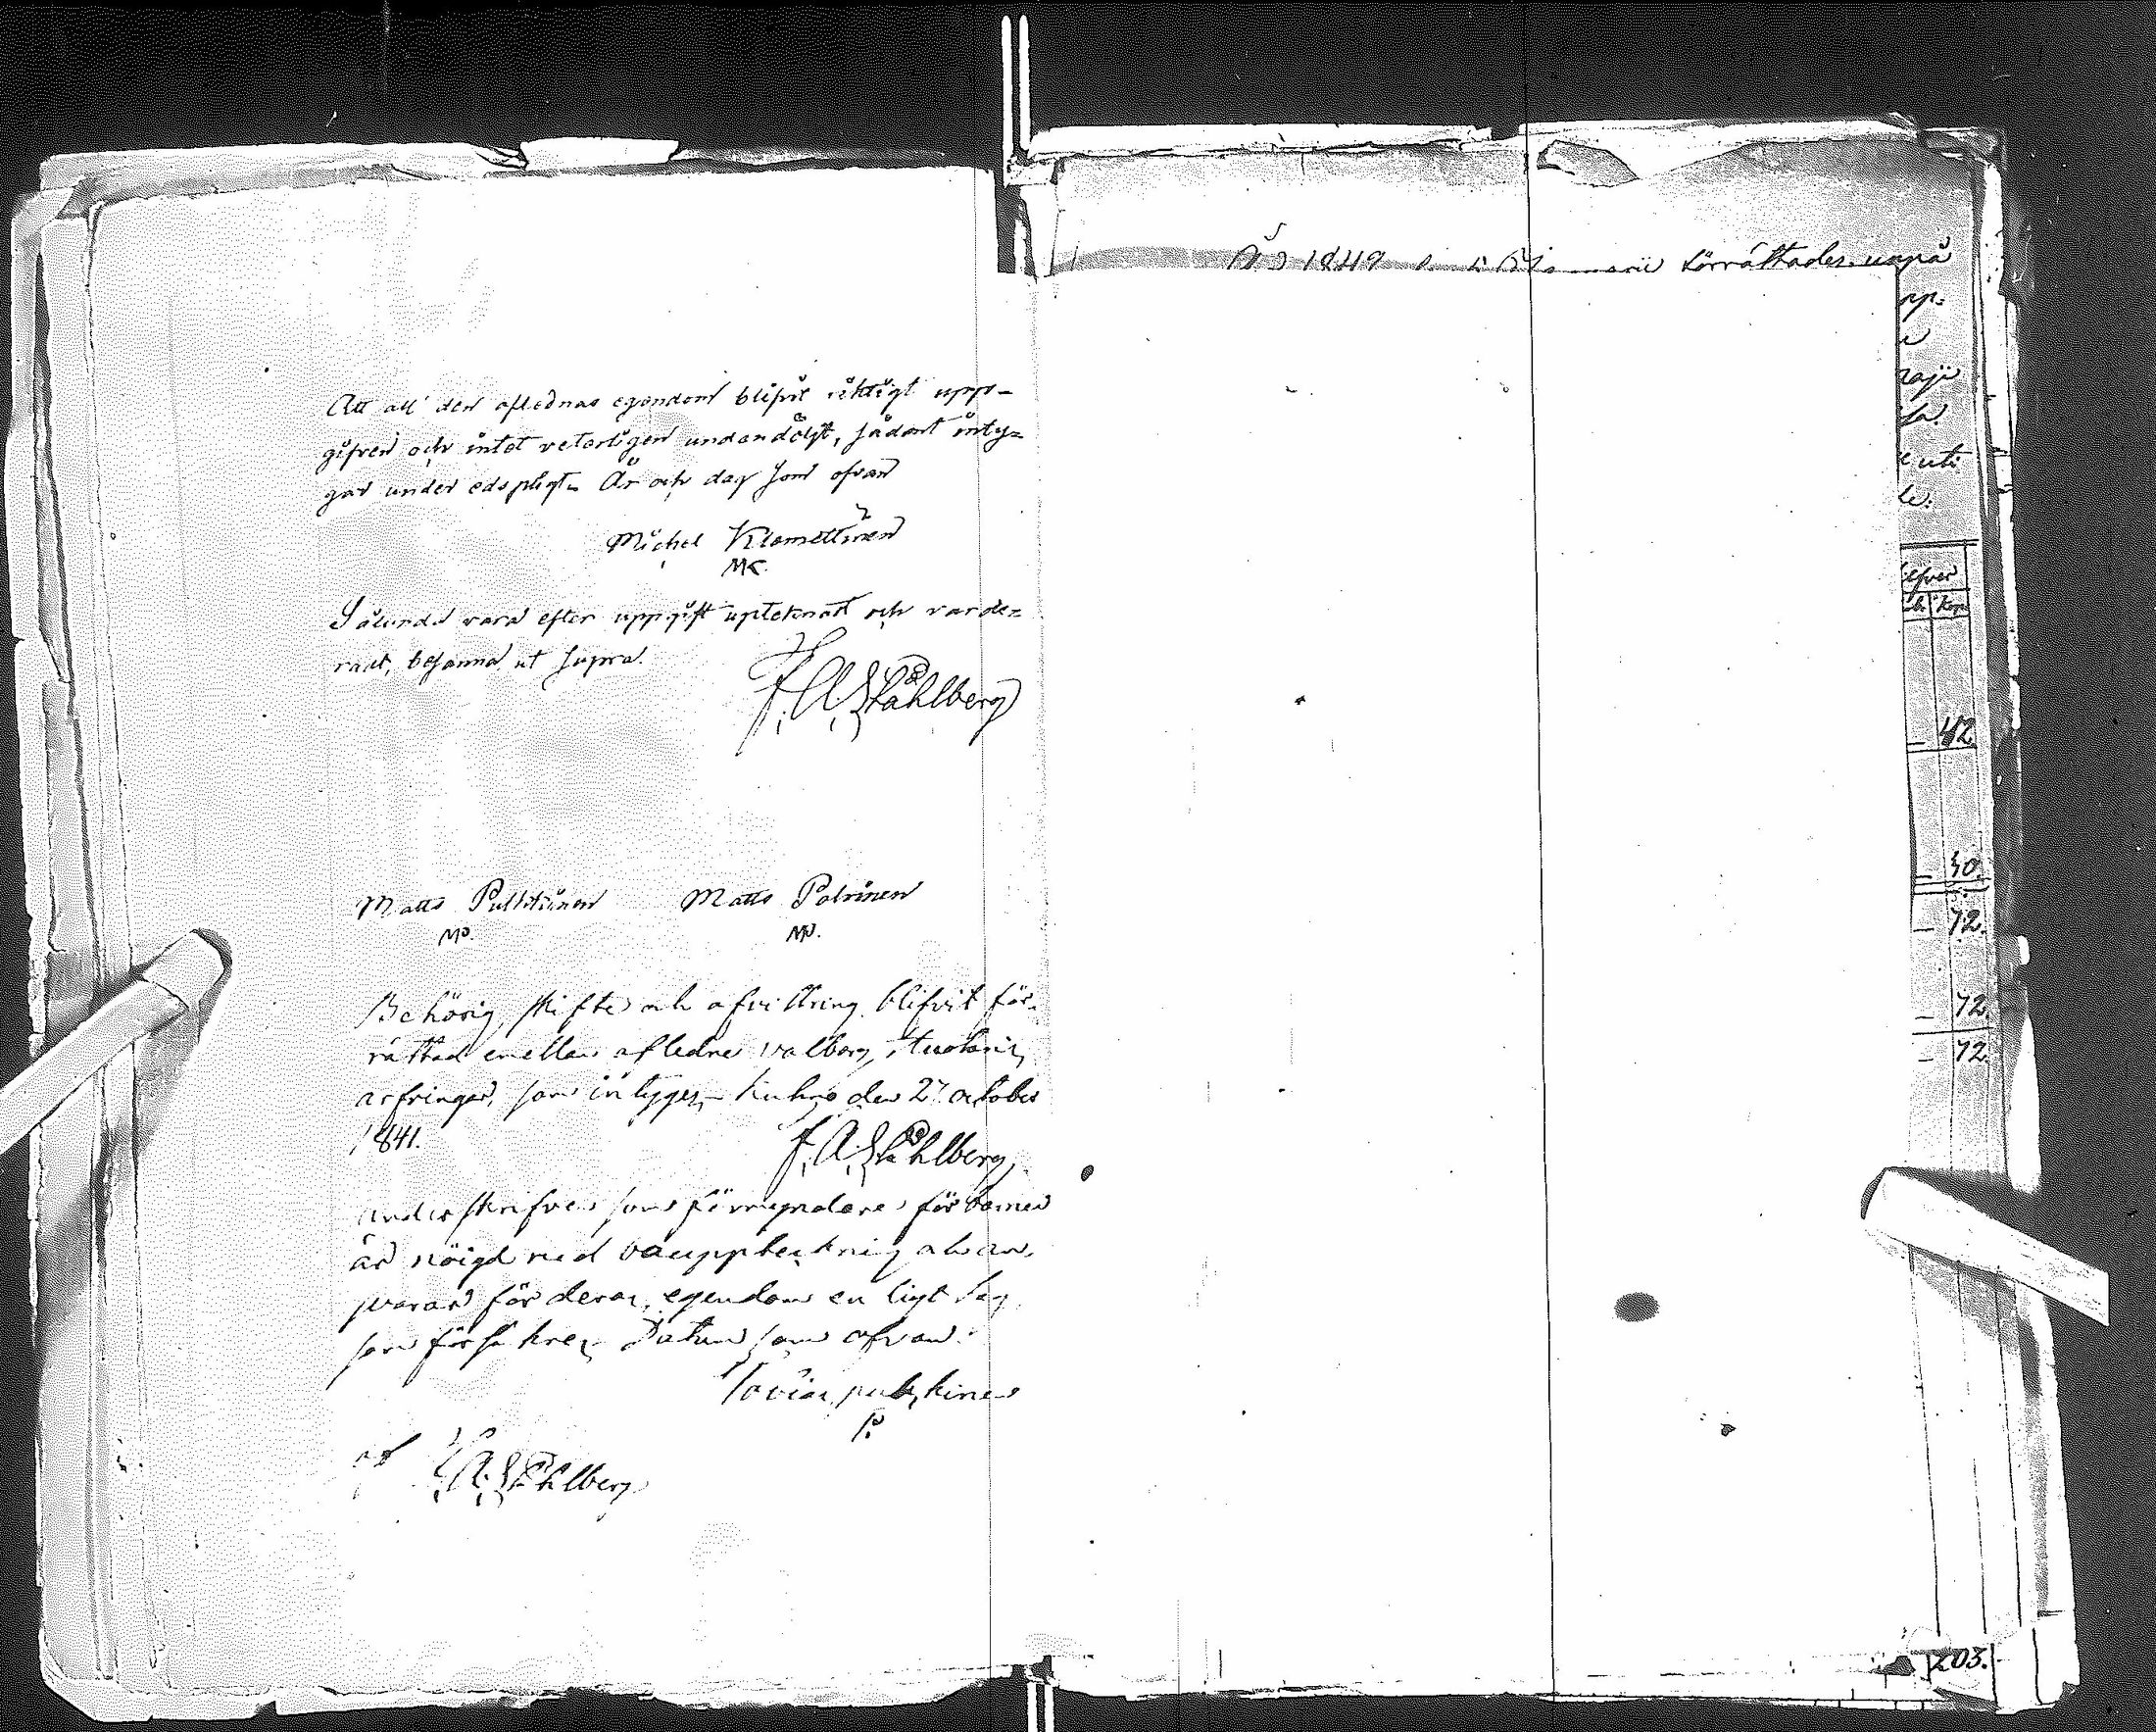 Att all den aflednas egendom blifvit riktigt upp-
gifven och intet veterligen undandöljt, sådant inty-
gar under edspligt. År och dag som ofvan
Michel Klemettinen
MK.
Sålunda vara efter uppgift upteknat och varde-
radt, bejanna ut supra.
F. A. Ståhlberg
Matts Pulkkinen Matts Polvinen
MP. MP.
Behörig skifte och afvittring blifvit för-
rättad emellan afledne Valborg
arfvingar, som intygges Kuhmo den 27 october
1841. F. A. Ståhlberg
Underskrifven som förmyndare för barnen
är nöigd med bouppteckning och an-
svarar för deras egendom en ligt lag
som försäkres Datum som ofvan.
Tovias pulkkinen
P.
F. A. Ståhlberg
År 1842 förrättades uppå
pp.
uti
Silfver
Kop
42
30.
72.
72.
72.
203.